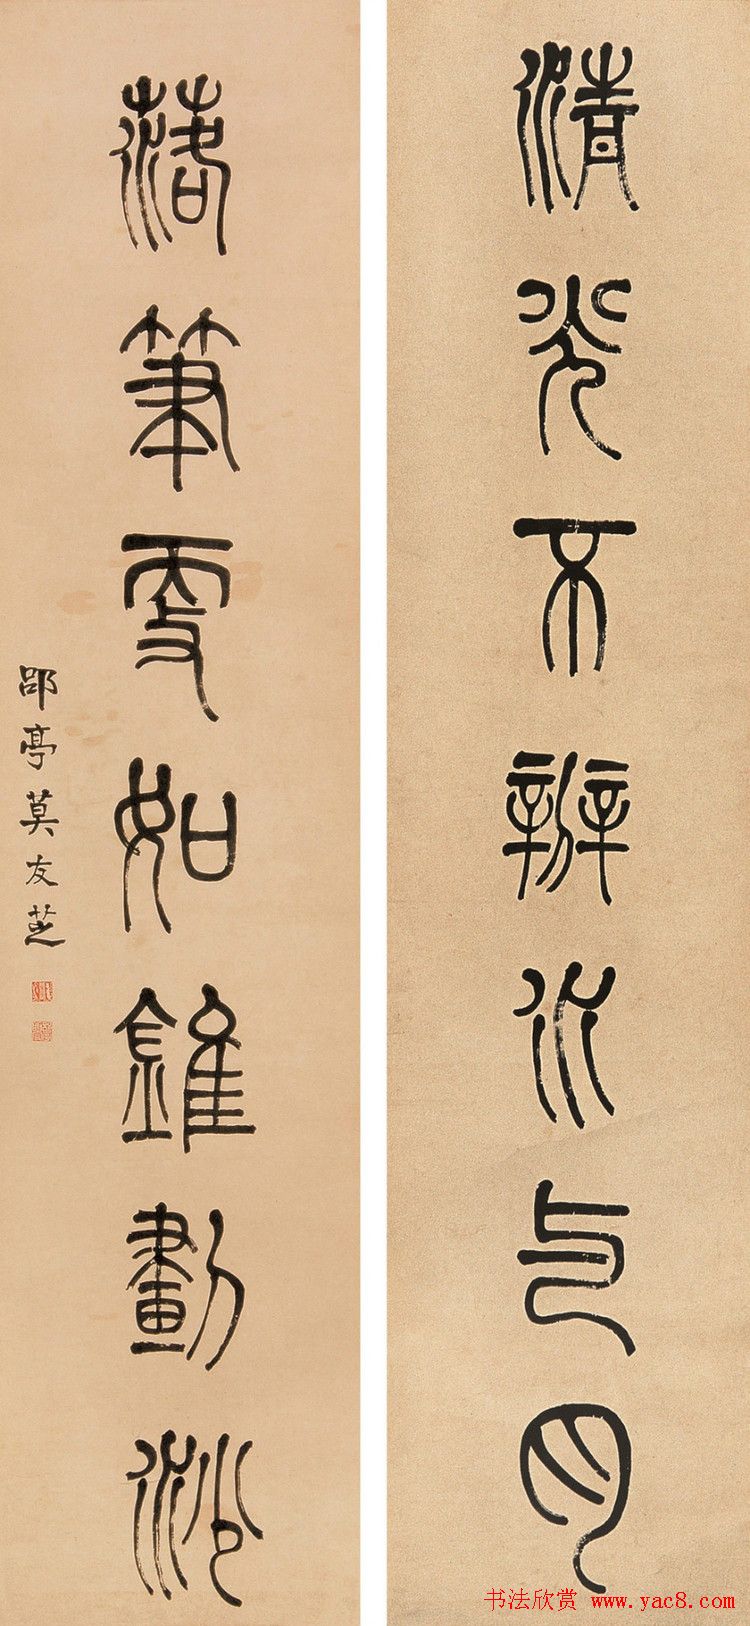 清光不辨水与月
落筆更如錐劃沙
郘亭莫友芝
书法欣赏 www.yac8.com